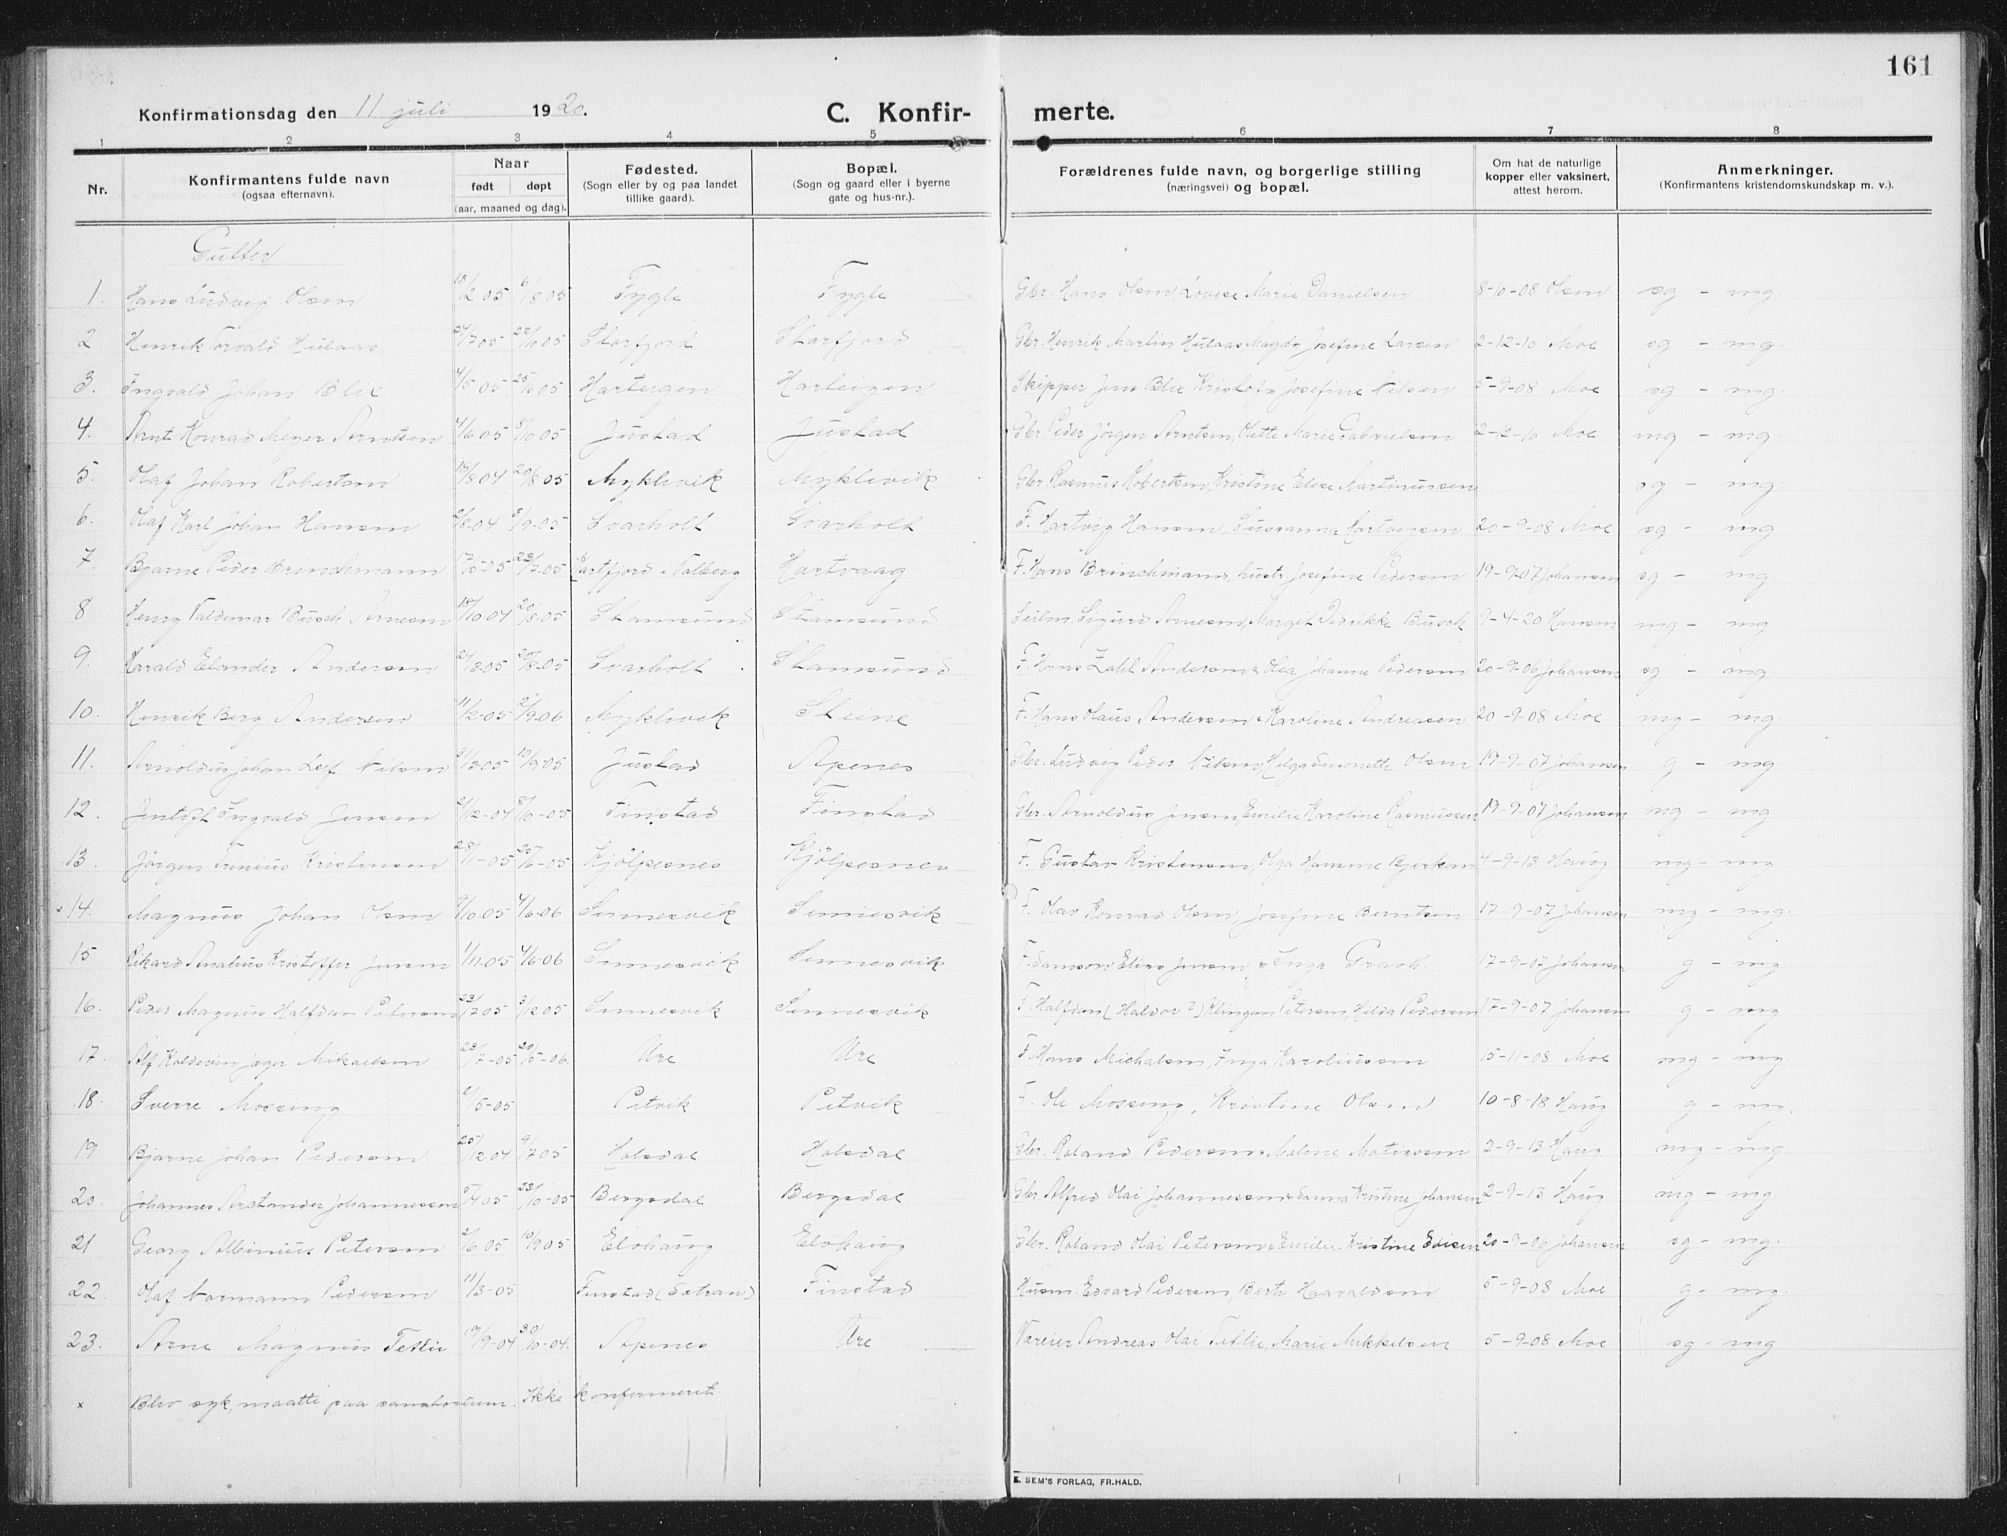 161
Konfirmationsdag den 11 juli 1920.
C. Konfir- merte.
1 2 3 4 5 6 7 8
Nr.
Konfirmantens fulde navn
(ogsaa efternavn).
Naar
født døpt
(aar, maaned og dag).
Fødested.
(Sogn eller by og paa landet
tillike gaard).
Bopæl.
(Sogn og gaard eller i byerne
gate og hus-nr.).
Forældrenes fulde navn, og borgerlige stilling
(næringsvei) og bopæl.
Om hat de naturlige
kopper eller vaksinert,
attest herom.
Anmerkninger.
(Konfirmantens kristendomskundskap m. v.).
Gutter
1. Hans Ludvig Olsen 13/2 05 6/8 05 Fygle Fygle Gbr. Hans Olsen, Lovise Marie Danielsen 8-10-08 Olsen sg - mg.
2 Henrik Torvald Hulaas 24/7 05 22/10 05 Storfjord Storfjord Gbr. Henrik Martin Hulaas, Magda Josefine Larsen 2-12-10 Moe sg - mg.
3. Ingvald Johan Blix 4/5 05 25/6 05 Harteigen Harteigen Skipper Jens Blix Kristofa Josefine Nilsen 5-9-08 Moe sg - mg.
4. Arnt Konrad Meyer Arntsen 4/6 05 8/10 05 Justad Justad Gbr. Peder Jørgen Arntsen, Olitte Marie Gabrielsen 2-12-10 Moe mg - mg.
5. Olaf Johan Robertsen 18/8 04 20/8 05 Myklevik Myklevik Gbr. Rasmus Robertsen, Kristine Elise Martinussen sg - mg.
6. Olaf Karl Johan Hansen /8 04 /9-05 Svarholt Svarholt F. Hartvig Hansen, Susanna Hartvigsen 20-9-08 Moe sg - mg
7. Bjarne Peder Brinchmann 17/5-05 23/7 05 Hartfjord i Valberg Hartvaag F. Hans Brinchmann, hustr. Josefine Pedersen 19-9-07 Johansen sg - mg
8 Henry Valdemar Busch Arnesen 18/10 04 20/8 05 Stamsund Stamsund Seilm. Sigurd Arnesen, Margit Didrikke Busch 9-4-20 Hansen mg - mg
9. Harald Elander Andersen 24/3 05 20/8-05 Svarholt Stamsund F. Hans Zahl Andersen & Lea Johanne Pedersen 20-9-06 Johansen sg - mg
10. Henrik Berg Andersen 11/2-05 2/9 06 Myklevik Steine F. Hans Olaus Andersen & Karoline Andreasen 20-9-08 Moe mg - mg.
11. Arnoldus Johan Leif Nilsen /3 05 10/9 05 Justad Apenes Gbr. Ludvig Peder Nilsen, Helga Simonette Olsen 19-9-07 Johansen g - mg
12. Jentoft Ingvald Jensen 2/12-04 8/10-05 Finstad Finstad Gbr. Arnoldus Jensen, Emilie Karoline Rasmussen 19-9-07 Johansen mg - mg
13. Jørgen Trinius Kristensen 28/1-05 25/6-05 Kjölpesnes Kjölpesnes F. Gustav Kristensen, Olga Hansine Bjerken 4-9-13 Haug mg - mg
x 14. Magnus Johan Olsen /10 05 4/6-06 Sennesvik Sennesvik F. Olav Konrad Olsen Josefine Berntsen 17-9-07 Johansen mg - mg.
15 Rikard Analius Kristoffer Jensen 1/11-05 4/6-06 Sennesvik Sennesvik F. Samson Elias Jensen & Inga 17-9-07 Johansen g - mg
16. Peder Magnus Halfdan Petersen 23/7 05 3/12 05 Sennesvik Sennesvik F. Halfdan (Haldor ?) Klingen Petersen, Hilda Pedersen 17-9-07 Johansen g - mg
17. Alf Koldevin Jæger Mikaelsen 22/7-05 20/5-06. Ure Ure F. Hans Michalsen, Inga Karoliussen 15-11-08 Moe mg - mg.
18. Sverre Mossing 2/5-05 Petvik Petvik F. Ole Mossing, Kristine Olsen 10-8-18 Haug g - mg.
19 Bjarne Johan Pedersen 25/12 04 9/7 05 Holsdal Holsdal Gbr. Roland Pedersen & Malene Matiassen 2-9-13 Haug mg - mg
20. Johannes Arstander Johannessen 5/4 05 23/10-05 Bergsdal Bergsdal Gbr. Alfred Olai Johannessen & Sanna Kristine Johansen 2-9-13 Haug mg - mg
21 Georg Albinius Petersen 2/6 05 10/9 05 Elvhaug Elvhaug Gbr. Roland Olai Petersen & Emilie Kristine Edisen 20-9-06 Johansen sg - mg.
22. Olaf Normann Pedersen 11/3-05 Finstad (Sotran) Finstad Husm. Edvard Pedersen, Berte Haraldsen 5-9-08 Moe g - mg.
23. Arne Magnus Tetlie 19/9-04 30/10-04. Apenes Ure Væreier Andreas Olai Tetlie, Marie Mikkelsen 5-9-08 Moe sg - mg
x Blev syk, maatte paa sanatorium. Ikke konfirmeret
E. SEM'S FORLAG, FR.HALD.